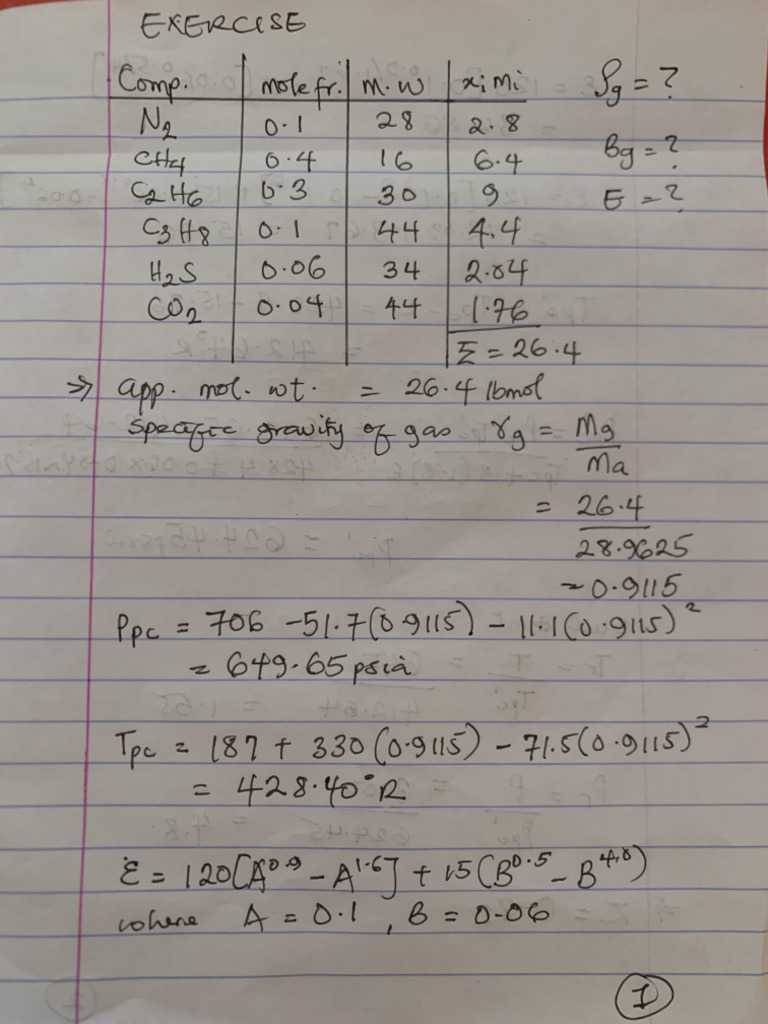 EXERCISE
Comp. | mole fr. | M.W | xiMi
N2 | 0.1 | 28 | 2.8
CH4 | 0.4 | 16 | 6.4
C2H6 | 0.3 | 30 | 9
C3H8 | 0.1 | 44 | 4.4
H2S | 0.06 | 34 | 2.04
CO2 | 0.04 | 44 | 1.76
Σ = 26.4
ρg = ?
Bg = ?
E = ?
⇒ app. mol. wt. = 26.4 lbmol
Specific gravity of gas γg = Mg/Ma
= 26.4/28.9625
= 0.9115
Ppc = 706 - 51.7(0.9115) - 11.1(0.9115)²
= 649.65 psia
Tpc = 187 + 330(0.9115) - 71.5(0.9115)²
= 428.40°R
Ɛ = 120[A^0.9 - A^1.6] + 15(B^0.5 - B^4.0)
where A = 0.1, B = 0.06
1